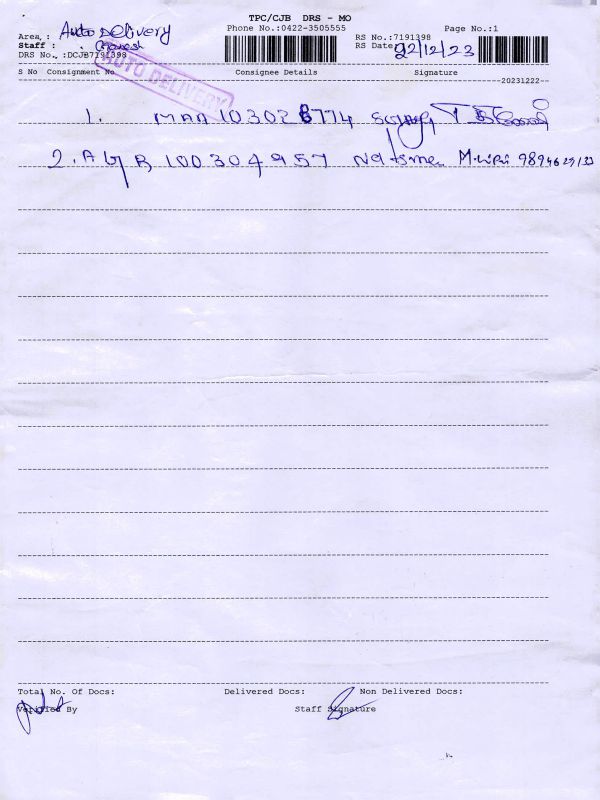 TPC/CJB DRS - MO
Area : Auto Delivery Phone No.:0422-3505555 RS No.:7191398 Page No.:1
Staff : RS Date 22/12/23
DRS No. :DCJB7191398
AUTO DELIVERY
S No Consignment No Consignee Details Signature
20231222
1. MAA 103028774
2. 100304957 9894629133
Total No. Of Docs: Delivered Docs: Non Delivered Docs:
Verified By Staff Signature